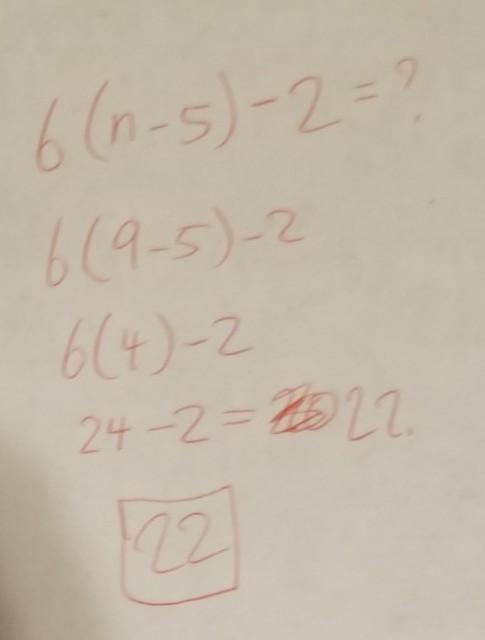 6(n-5)-2=?
6(9-5)-2
6(4)-2
24-2= 22.
22